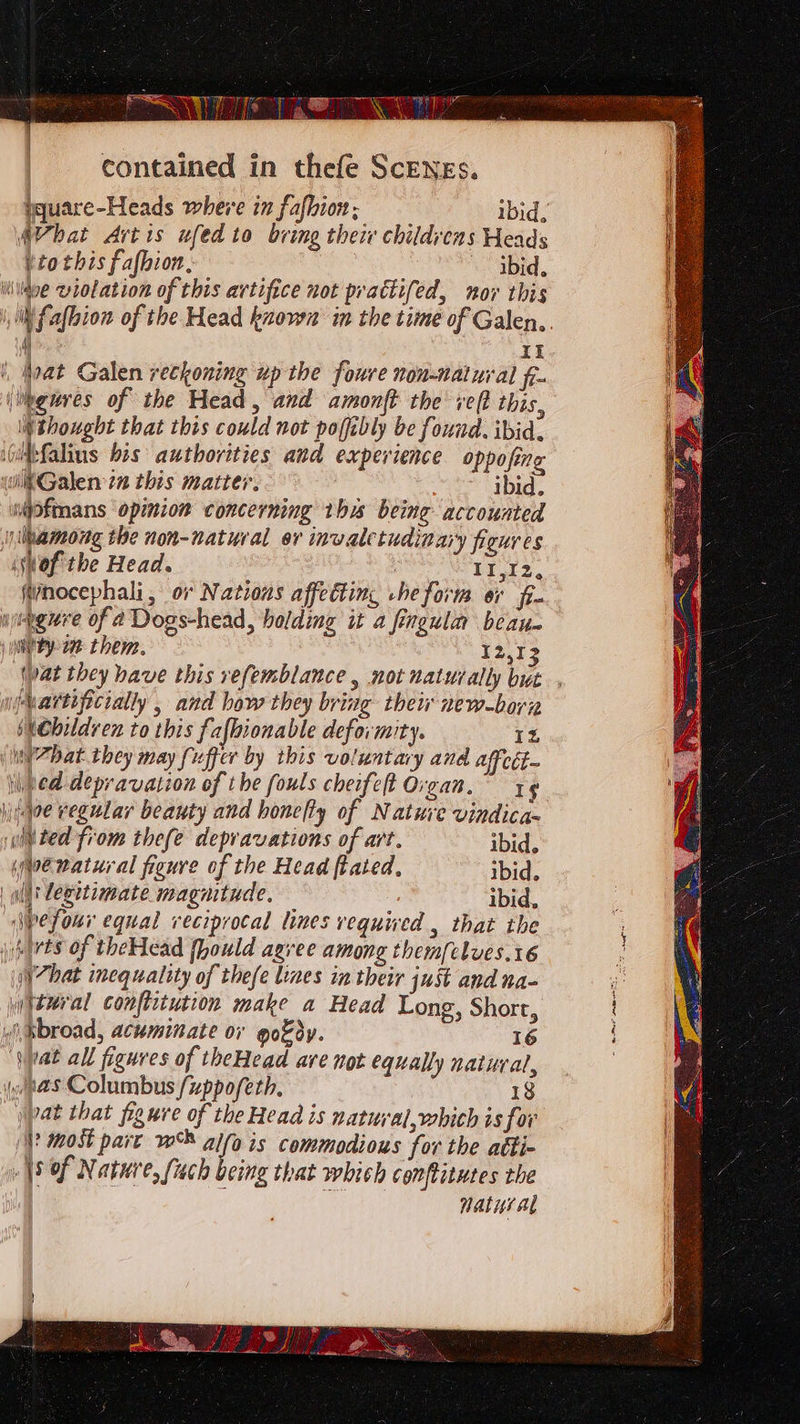 contained in theſe SCENES.
quare-Heads where in faſhion; ibid.
What Art is uſed to bring their childrens Heads
to this faſhion. ibid.
violation of this artifice not practiſed, nor this
faſhion of the Head known in the time of Galen.
11
at Galen reckoning up the foure non-natural fi-
gures of the Head, and amonſt the reſt this,
thought that this could not poſſibly be found. ibid.
ſalius his authorities and experience oppoſing
Galen in this matter. ibid.
ofmans opinion concerning this being accounted
among the non-natural or invaletudinary figures
of the Head. 11,12.
nocephali, or Nations affecting the form or fi-
gure of a Dogs-head, holding it a ſingular beau-
ty in them. 12,13
at they have this reſemblance, not naturally but
artificially, and how they bring their new-born
Children to this faſhionable deformity. 12
What they may ſuffer by this voluntary and affect-
ed depravation of the ſouls cheifeſt Organ. 15
regular beauty and honeſty of Nature vindica-
ted from theſe depravations of art. ibid.
natural figure of the Head ſtated. ibid.
legitimate magnitude. ibid.
four equal reciprocal lines required, that the
rts of theHead ſhould agree among themſelves. 16
What inequality of theſe lines in their juſt and na-
tural conſtitution make a Head Long, Short,
broad, acuminate or 16
at all figures of theHead are not equally natural,
as Columbus ſuppoſeth. 18
at that figure of the Head is natural, which is for
moſt part wch alſo is commodious for the acti-
s of Nature, ſuch being that which conſtitutes the
natural